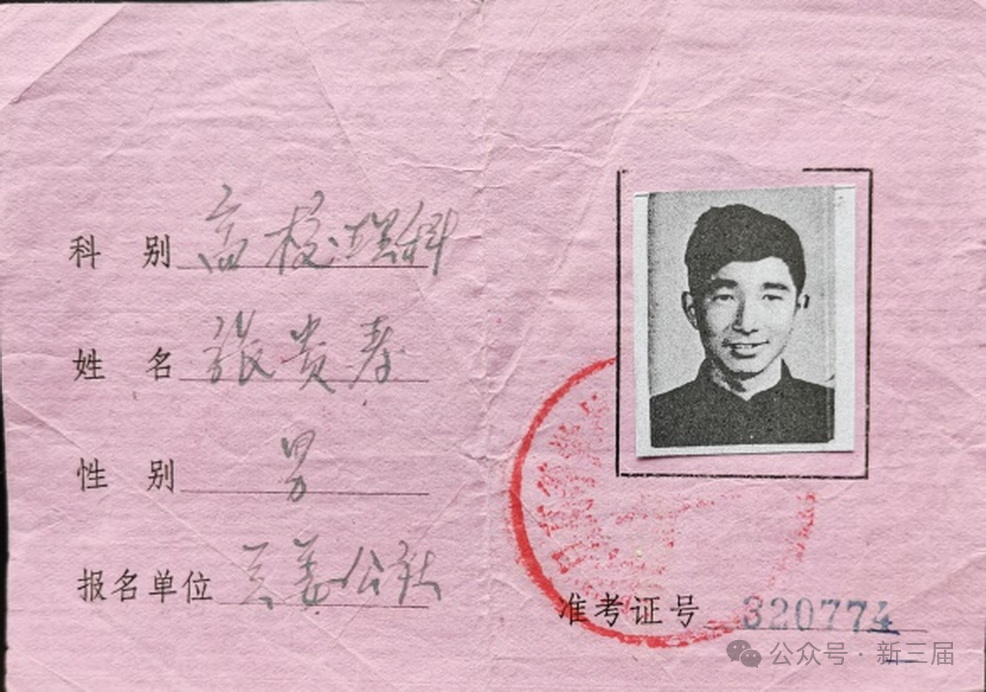 科 别 高校理科
姓 名 张贵寿
性 别 男
报名单位 公社
准考证号 320774
公众号·新三届